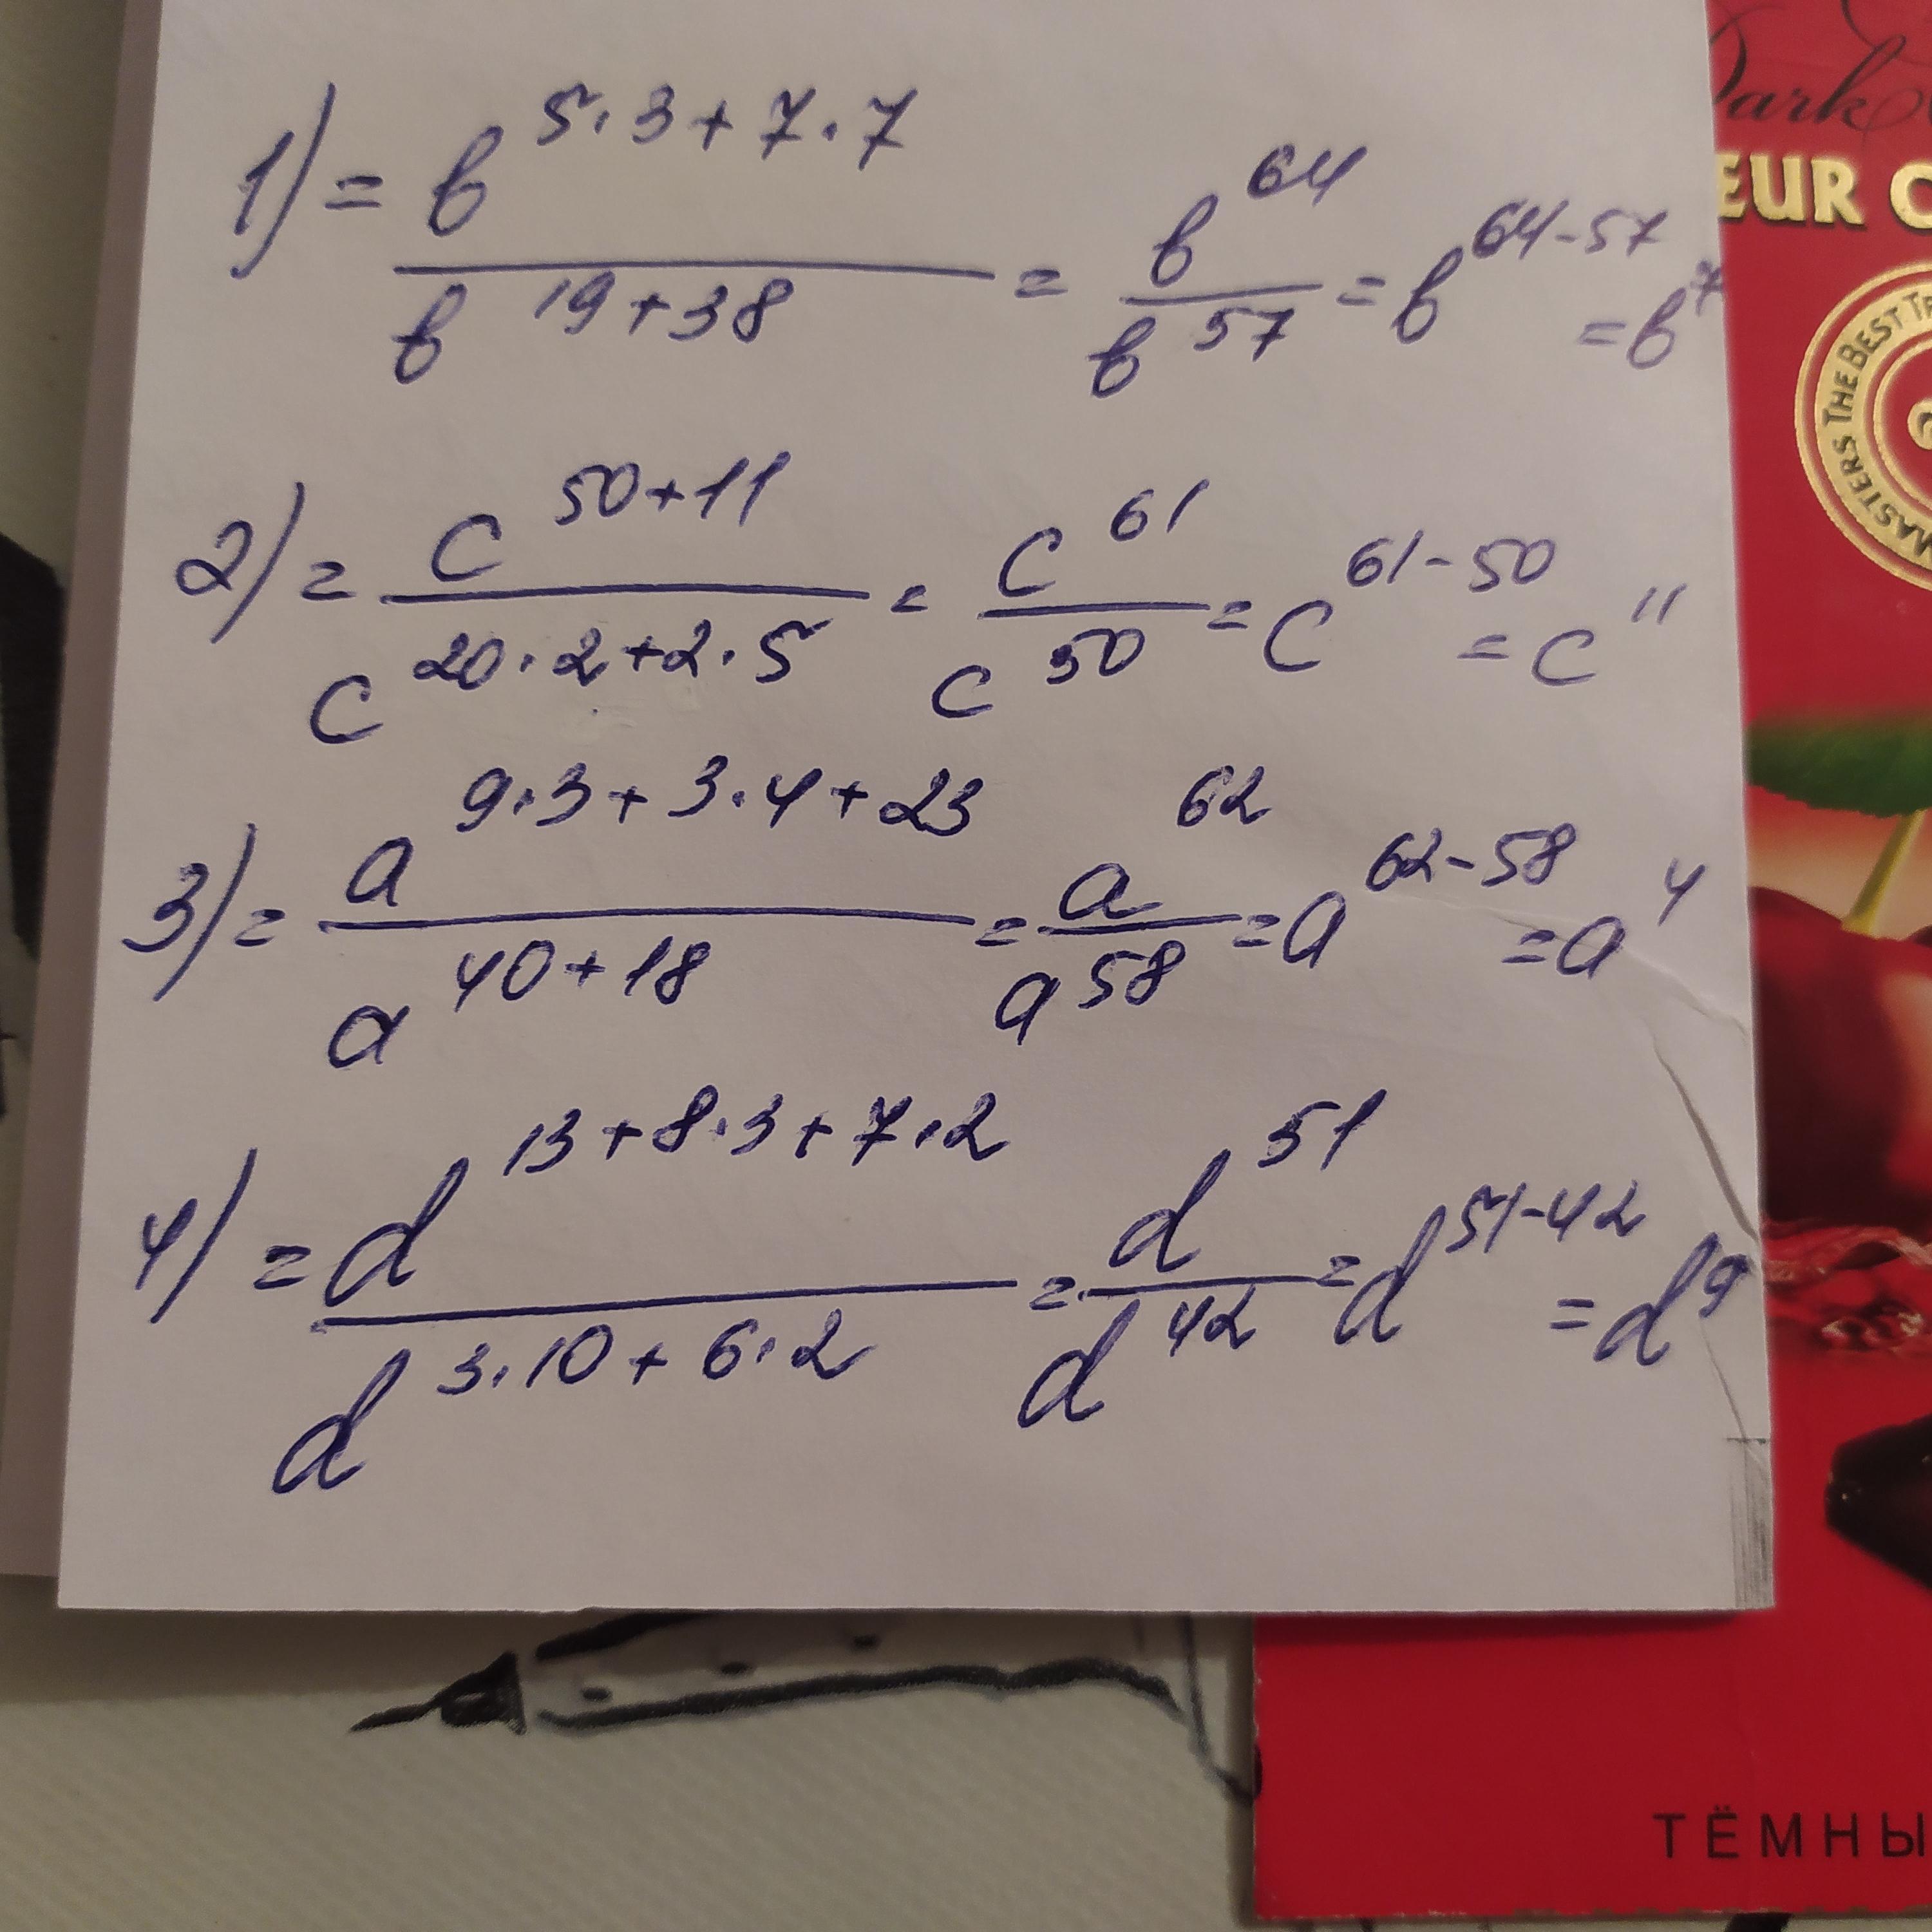 1) = b^{5·3+7·7} / b^{19+38} = b^{64} / b^{57} = b^{64-57} = b^7
2) = c^{50+11} / c^{20·2+2·5} = c^{61} / c^{50} = c^{61-50} = c^{11}
3) = a^{9·3+3·4+23} / a^{40+18} = a^{62} / a^{58} = a^{62-58} = a^4
4) = d^{13+8·3+7·2} / d^{3·10+6·2} = d^{51} / d^{42} = d^{51-42} = d^9
Dark
EUR
MASTERS THE BEST
ТЁМНЫ